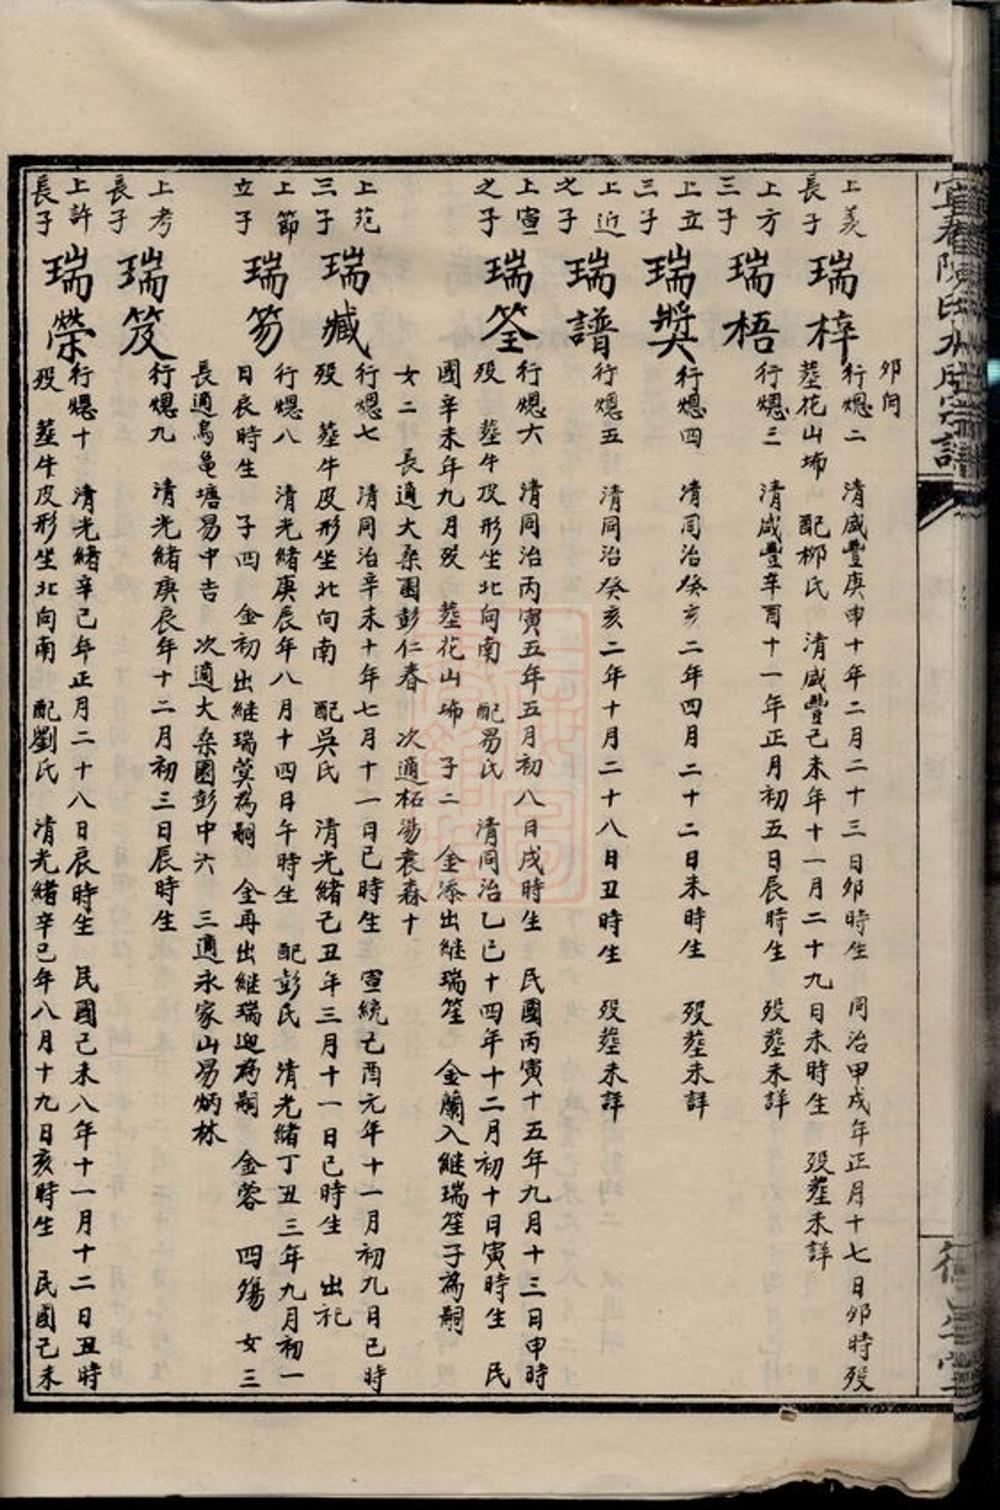 卯问
上义長子 瑞梓 行熜二 清咸豐庚申十年二月二十三日卯時生 同治甲戌年正月十七日卯時殁
塟花山垴 配柳氏 清咸豐己未年十一月二十九日未時生 殁塟未詳
上方三子 瑞梧 行熜三 清咸豐辛酉十一年正月初五日辰時生 殁塟未詳
上立三子 瑞奬 行熜四 清同治癸亥二年四月二十二日未時生 殁塟未詳
上近之子 瑞譜 行熜五 清同治癸亥二年十月二十八日丑時生 殁塟未詳
上宣之子 瑞筌 行熜六 清同治丙寅五年五月初八日戌時生 民國丙寅十五年九月十三日申時
殁 塟牛皮形坐北向南 配易氏 清同治乙巳十四年十二月初十日寅時生 民
國辛未年九月殁 塟花山垴 子二 金添出継瑞笙 金蘭入継瑞笙子為嗣
女二 長適大桑園彭仁春 次適柘湯袁森十
上范三子 瑞臧 行熜七 清同治辛未十年七月十一日巳時生 宣統己酉元年十一月初九日巳時
殁 塟牛皮形坐北向南 配吳氏 清光緒己丑年三月十一日巳時生 出祀
上節立子 瑞笏 行熜八 清光緒庚辰年八月十四日午時生 配彭氏 清光緒丁丑三年九月初一
日辰時生 子四 金初出継瑞蓂為嗣 金再出継瑞迎為嗣 金蓉 四殤 女三
長適烏龜塘易中吉 次適大桑園彭中六 三適永家山易炳林
上考長子 瑞笈 行熜九 清光緒庚辰年十二月初三日辰時生
上許長子 瑞榮 行熜十 清光緒辛己年正月二十八日辰時生 民國己未八年十一月十二日丑時
殁 塟牛皮形坐北向南 配劉氏 清光緒辛巳年八月十九日亥時生 民國己未